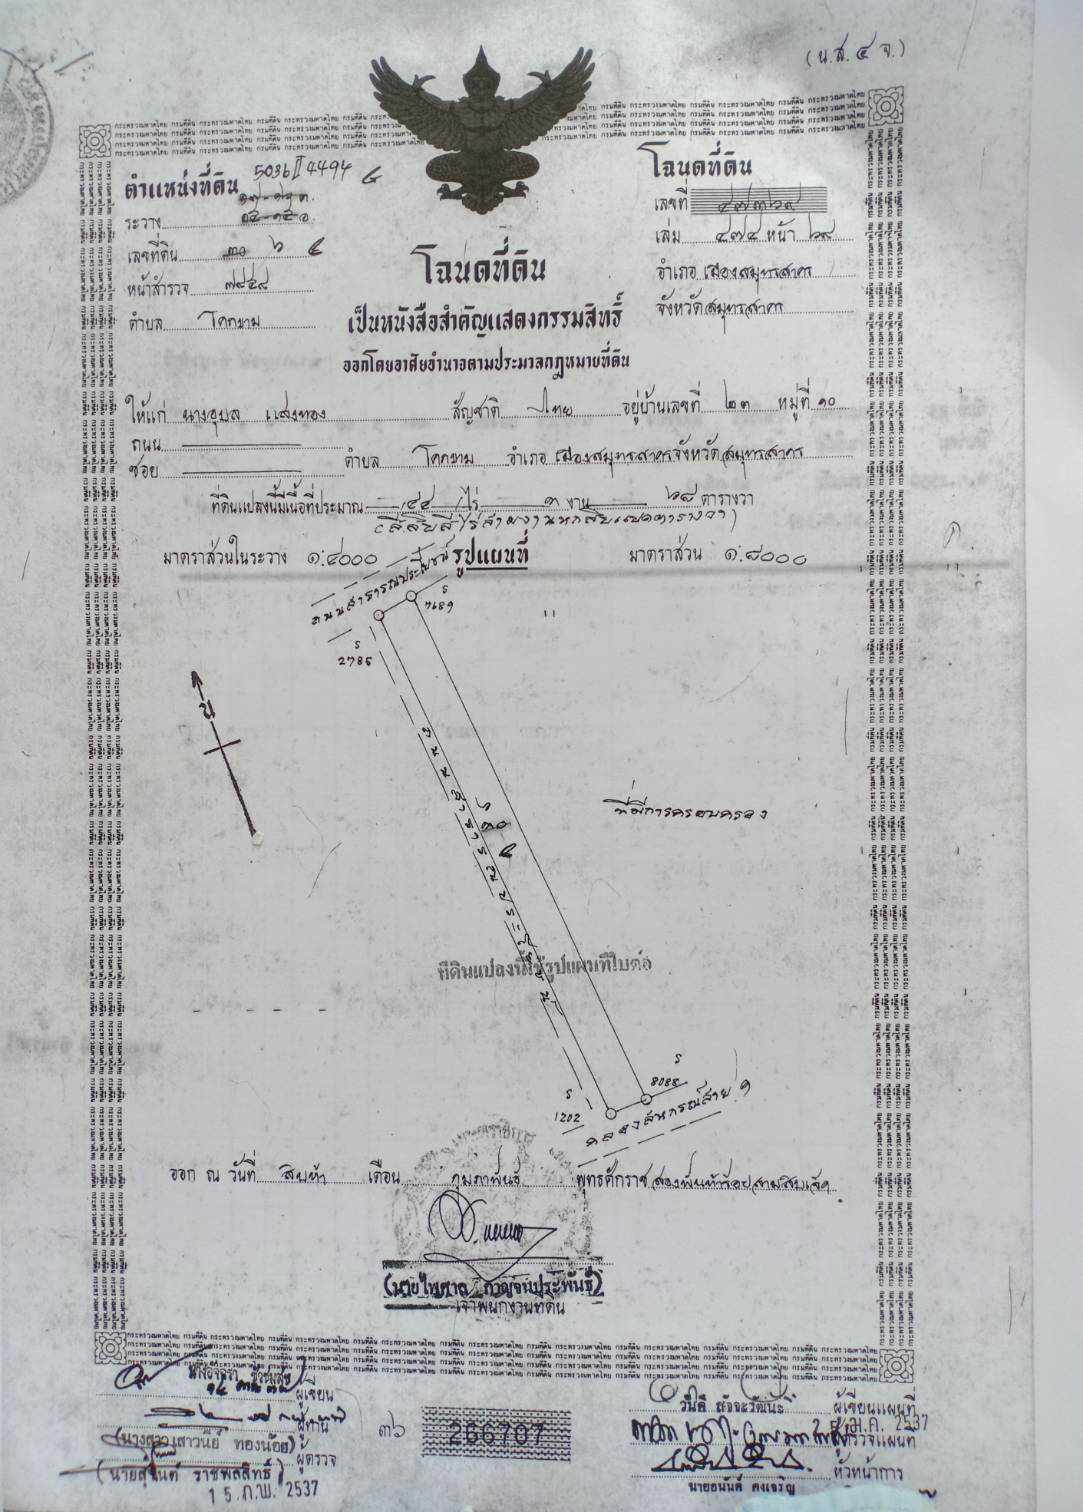 (น.ส.๔ จ.)
ตำแหน่งที่ดิน 5036 II 4494
ระวาง
เลขที่ดิน ๖
หน้าสำรวจ ๗๙๔๘
ตำบล โคกขาม
โฉนดที่ดิน
เลขที่ ๔๗๓๖๙
เล่ม ๔๗๔ หน้า ๖๙
อำเภอ เมืองสมุทรสาคร
จังหวัด สมุทรสาคร
โฉนดที่ดิน
เป็นหนังสือสำคัญแสดงกรรมสิทธิ์
ออกโดยอาศัยอำนาจตามประมวลกฎหมายที่ดิน
ให้แก่ นางอุบล แสงทอง สัญชาติ ไทย อยู่บ้านเลขที่ ๒๓ หมู่ที่ ๑๐
ถนน
ซอย ตำบล โคกขาม อำเภอ เมืองสมุทรสาคร จังหวัด สมุทรสาคร
ที่ดินแปลงนี้มีเนื้อที่ประมาณ ๔๔ ไร่ ๓ งาน ๖๘ ตารางวา
(สี่สิบสี่ไร่สามงานหกสิบแปดตารางวา)
มาตราส่วนในระวาง ๑:๔๐๐๐ รูปแผนที่ มาตราส่วน ๑:๘๐๐๐
ถนนสาธารณประโยชน์
ร
7689
ร
2785
น
๖
๓๐
ที่มีการครอบครอง
ที่ดินแปลงนี้ใช้รูปแผนที่ใบต่อ
ร
8088
ร
1202
คลองสหกรณ์สาย ๑
ออก ณ วันที่ สิบห้า เดือน กุมภาพันธ์ พุทธศักราช สองพันห้าร้อยสามสิบเจ็ด
(นายไพศาล กาญจนประพันธ์)
เจ้าพนักงานที่ดิน
ผู้เขียน
ผู้ทาน
(นางสาวเสาวนีย์ ทองน้อย)
ผู้ตรวจ
(นายสุนันต์ ราชพลสิทธิ์)
15 ก.พ. 2537
๓๖
266707
วันดี สัจจะวัฒนะ ผู้เขียนแผนที่
25 ม.ค. 2537
ผู้ตรวจแผนที่
หัวหน้าการ
นายอนันต์ คงเจริญ